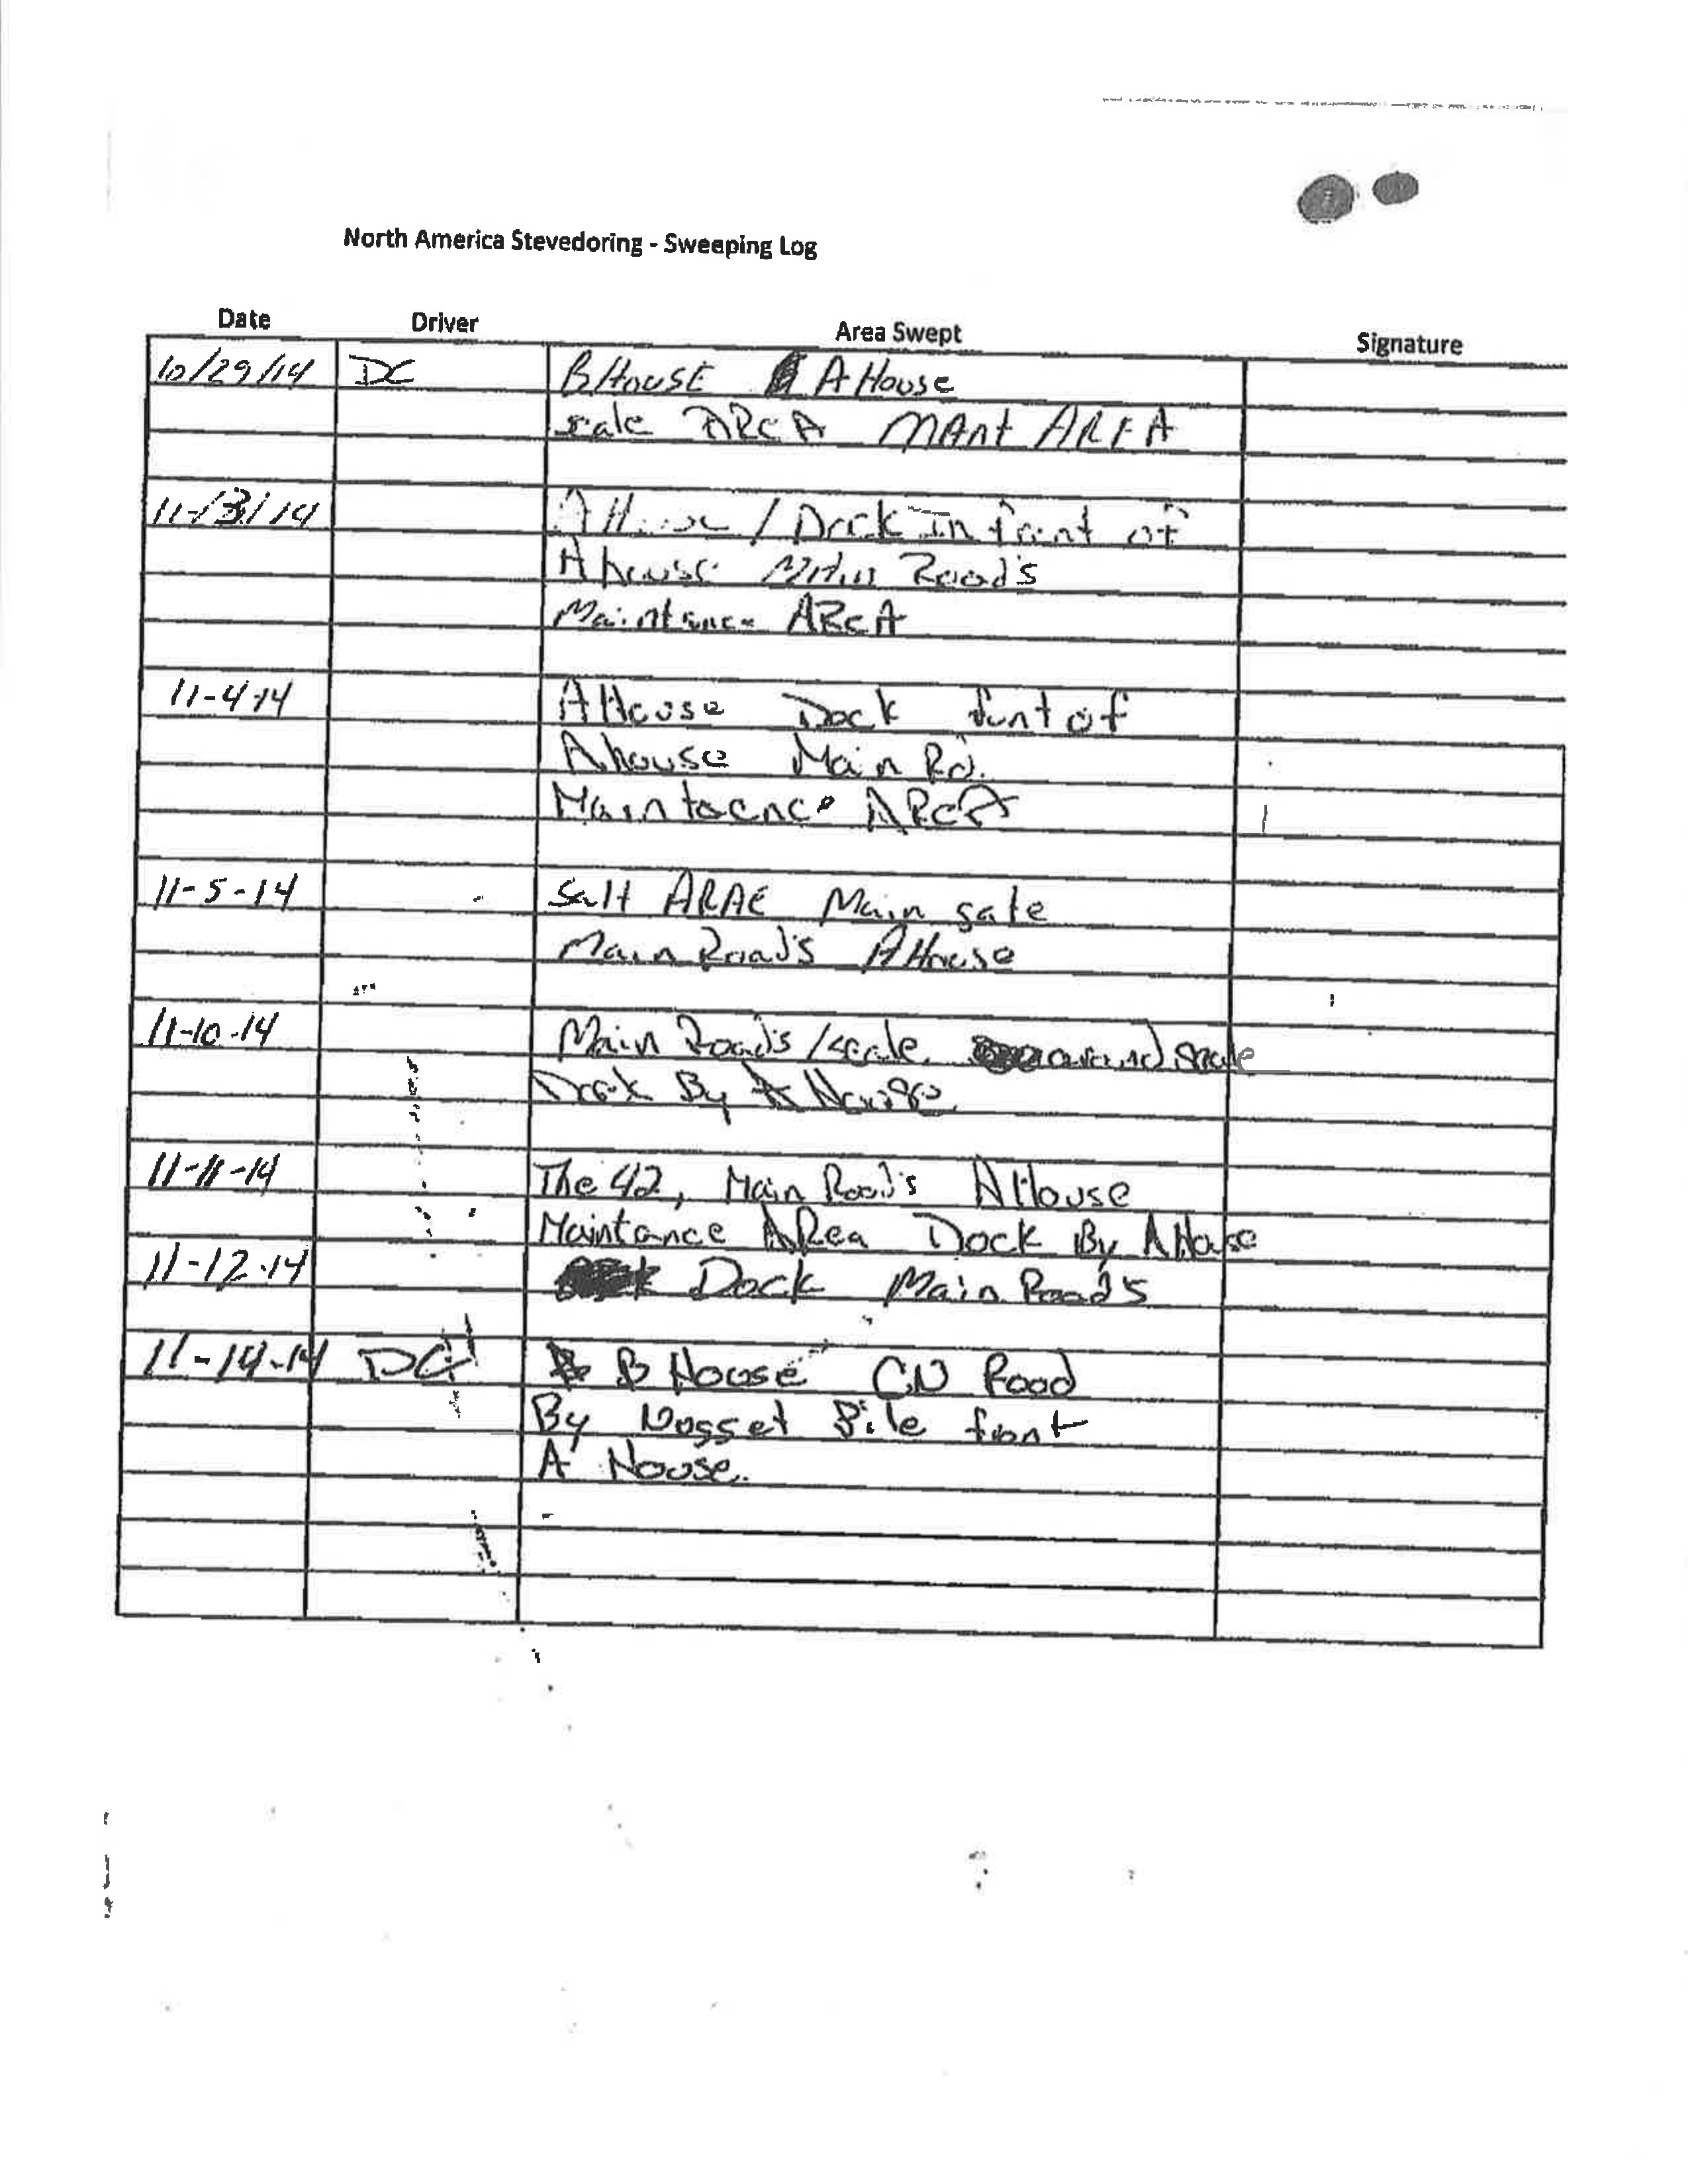 North America Stevedoring - Sweeping Log
Date Driver Area Swept Signature
10/29/14 DC B HOUSE A House
scale AREA MANT AREA
11/3/14 A House / Dock In front of
A house Main Road's
Maintance AREA
11-4-14 A House Dock funt of
A house Main Rd.
Maintaence AREA
11-5-14 Salt ARAE Main gate
Main Road's A House
11-10-14 Main Road's / scale around scale
Dock By A House
11-11-14 The 42, Main Road's A House
Maintance ARea Dock By A House
11-12-14 Dock Main Roads
11-14-14 DC B House CN Road
By Nugget Pile front
A House.